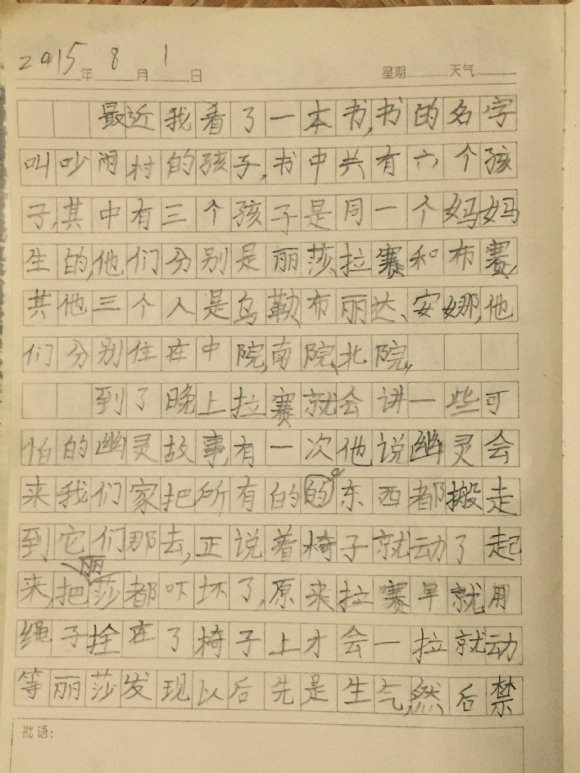 2015年 8月 1日 星期 天气
最近我看了一本书,书的名字
叫吵闹村的孩子,书中共有六个孩
子,其中有三个孩子是同一个妈妈
生的,他们分别是丽莎、拉赛和布赛,
其他三个人是乌勒、布丽达、安娜,他
们分别住在中院,南院,北院,
到了晚上拉赛就会讲一些可
怕的幽灵故事,有一次他说幽灵会
来我们家把所有的的东西都搬走
到它们那去,正说着椅子就动了起
来,把丽莎都吓坏了,原来拉赛早就用
绳子拴在了椅子上才会一拉就动
等丽莎发现以后先是生气,然后禁
批语: